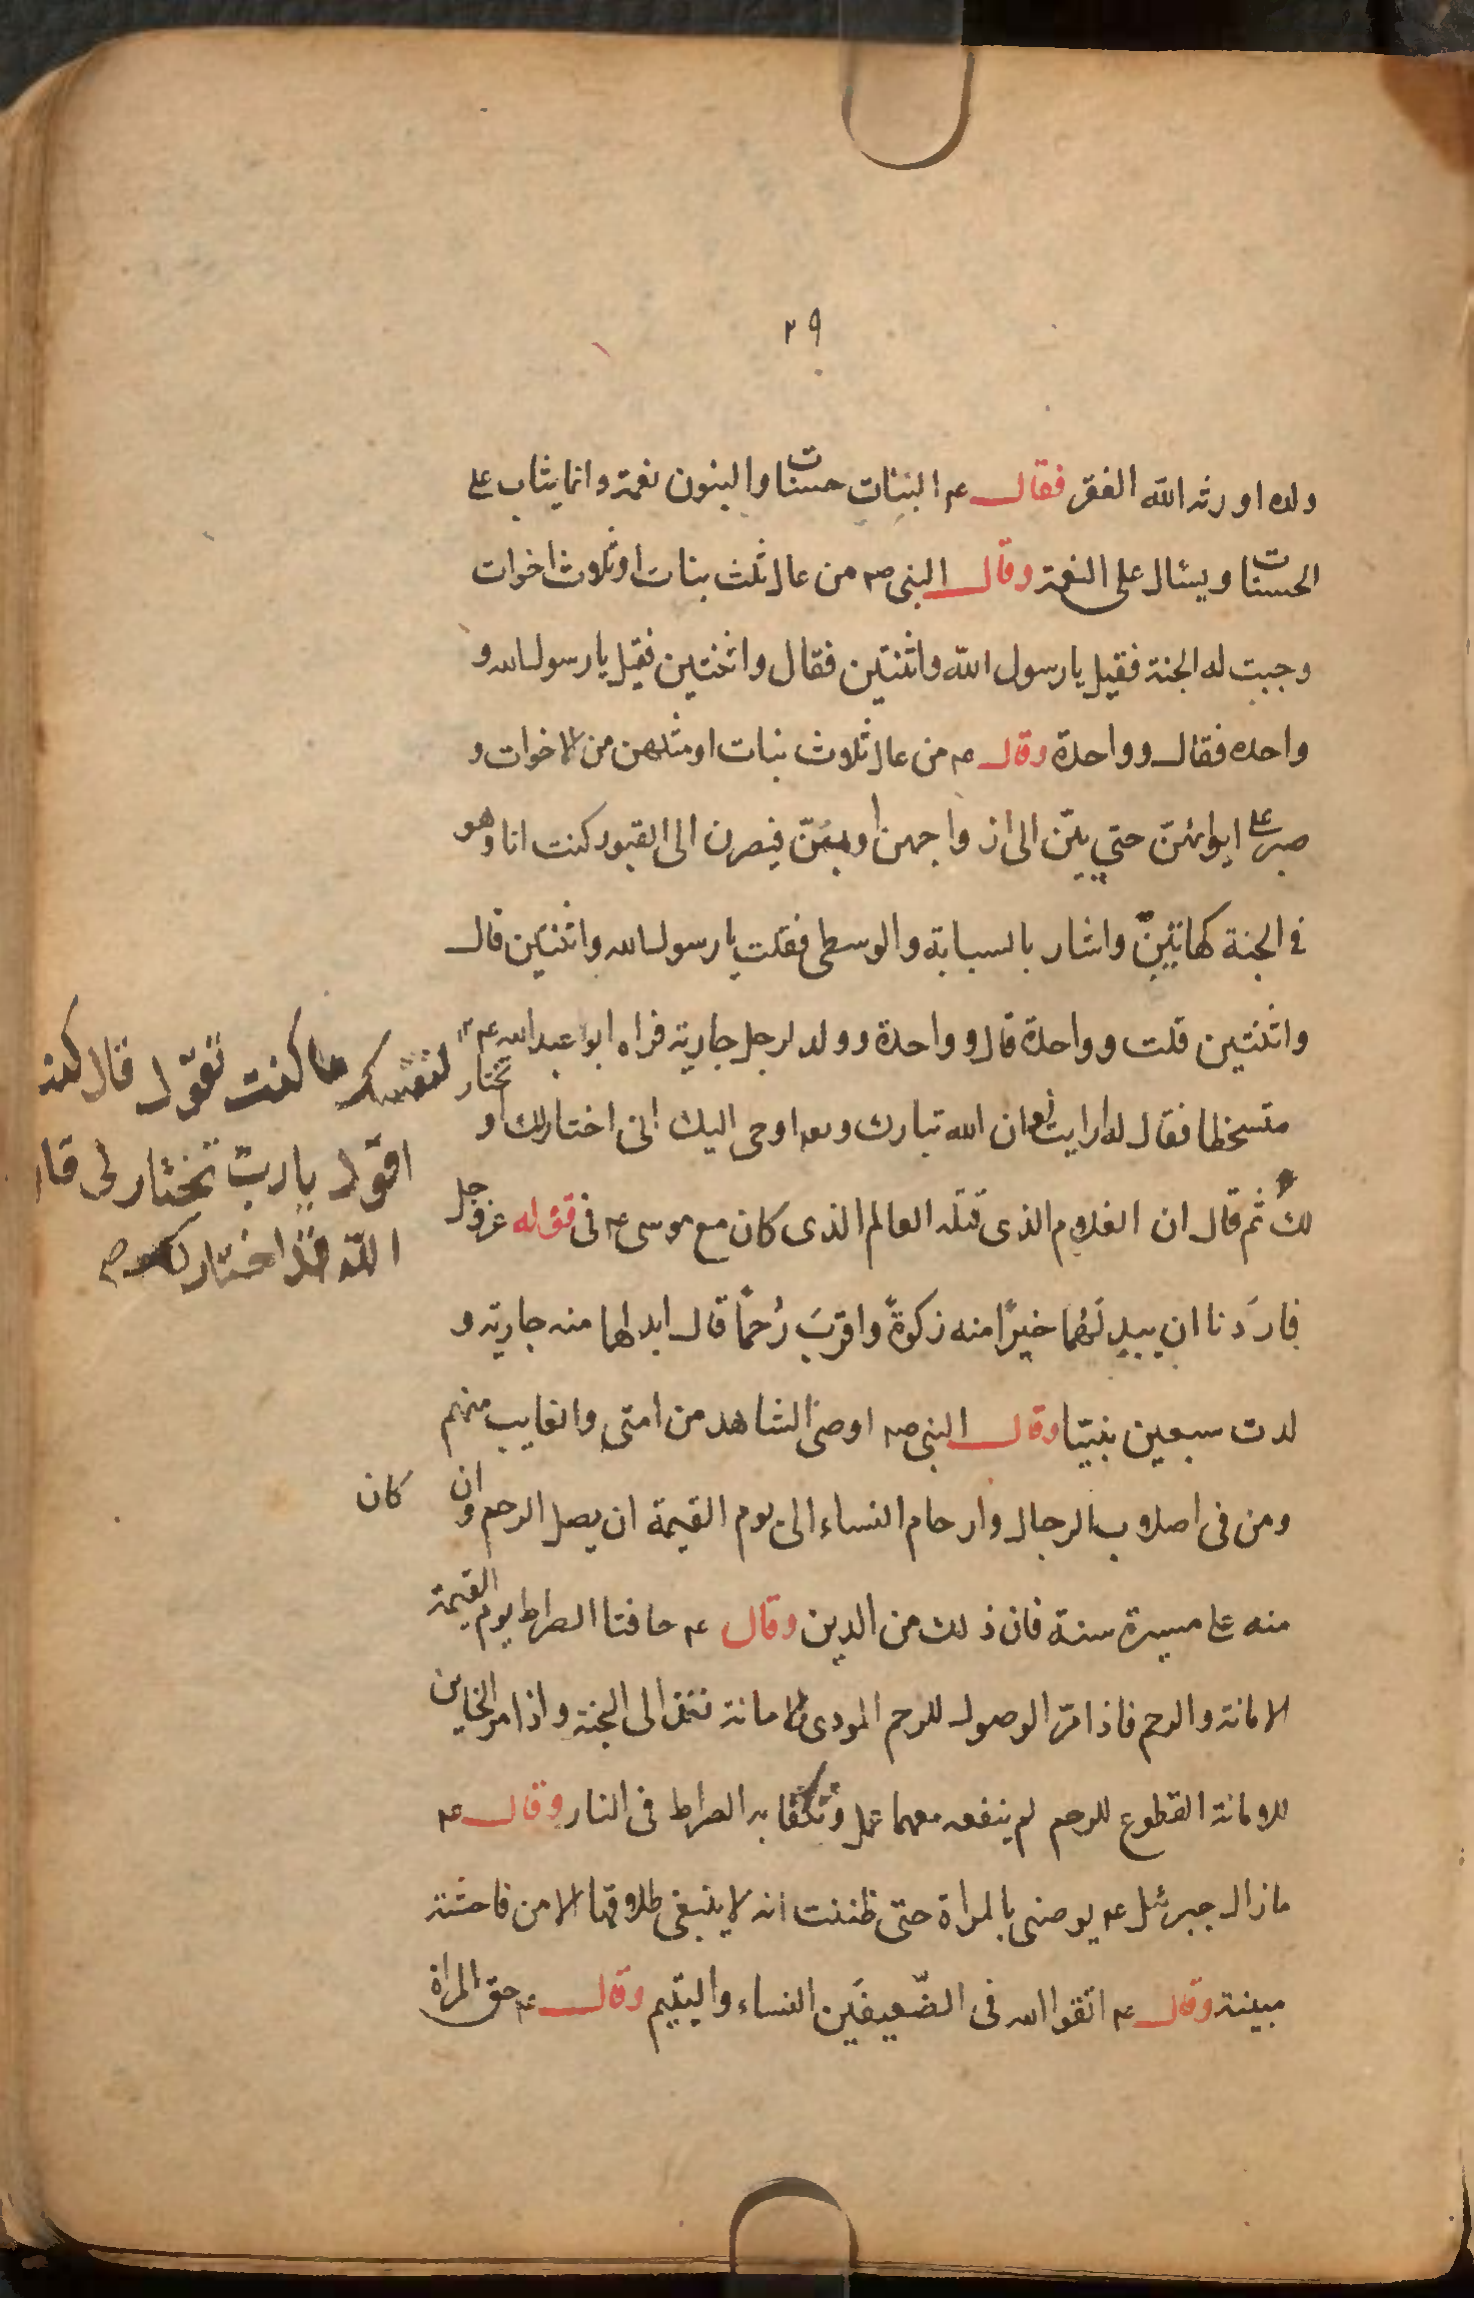 ٢٩
ولده اورثه الله الفقر فقال ع م البنات حسنات والبنون نعمة وانما يثاب على
الحسنات ويسئال على النعمة وقال النبى صم من عال ثلث بنات او ثلاث اخوات
وجبت له الجنة فقيل يا رسول الله واثنتين فقال واثنتين فقيل يا رسول الله و
واحده فقال وواحدة وقال ع م من عال ثلاث بنات او مثلهن من الاخوات و
صبر على ايوائهن حتي يبن الى ازواجهن او يمتن فيصرن الى القبور كنت انا وهو
فى الجنة كهاتين واشار بالسبابة والوسطى فقلت يا رسول الله واثنتين قال
واثنتين قلت وواحدة قال وواحدة وولد لرجل جارية فراه ابو عبد الله ع م
متسخطا فقال له ارايت لو ان الله تبارك وتعه اوحى اليك انى اختار لك او
تختار لنفسك ما كنت تقول قال كنت
اقول يا رب تختار لى قال
الله قد اختار لك صح
لك ثم قال ان الغلام الذى قتله العالم الذى كان مع موسى ع م فى قوله عز وجل
فاردنا ان يبدلهما خيرًا منه زكوةً واقربَ رُحمًا قال ابدلهما منه جارية و
لدت سبعين نبيّا وقال النبى صم اوصى الشاهد من امتى والغايب منهم
ومن فى اصلاب الرجال وارحام النساء الى يوم القيمة ان يصل الرحم وان كان
منه على مسيرة سنة فان ذلك من الدين وقال ع م حافتا الصراط يوم القيمة
الامانة والرحم فاذا مرّ الوصول للرحم المودى للامانة نفذ الى الجنة واذا مر الخاين
للامانة القطوع للرحم لم ينفعه معهما عمل وتكفا به الصراط فى النار وقال ع م
ما زال جبرئيل ع م يوصنى بالمراة حتى ظننت انه لا ينبغى طلاقها الا من فاحشة
مبينة وقال ع م اتقوا الله فى الضّعيفين النساء واليتيم وقال ع م حق المراة